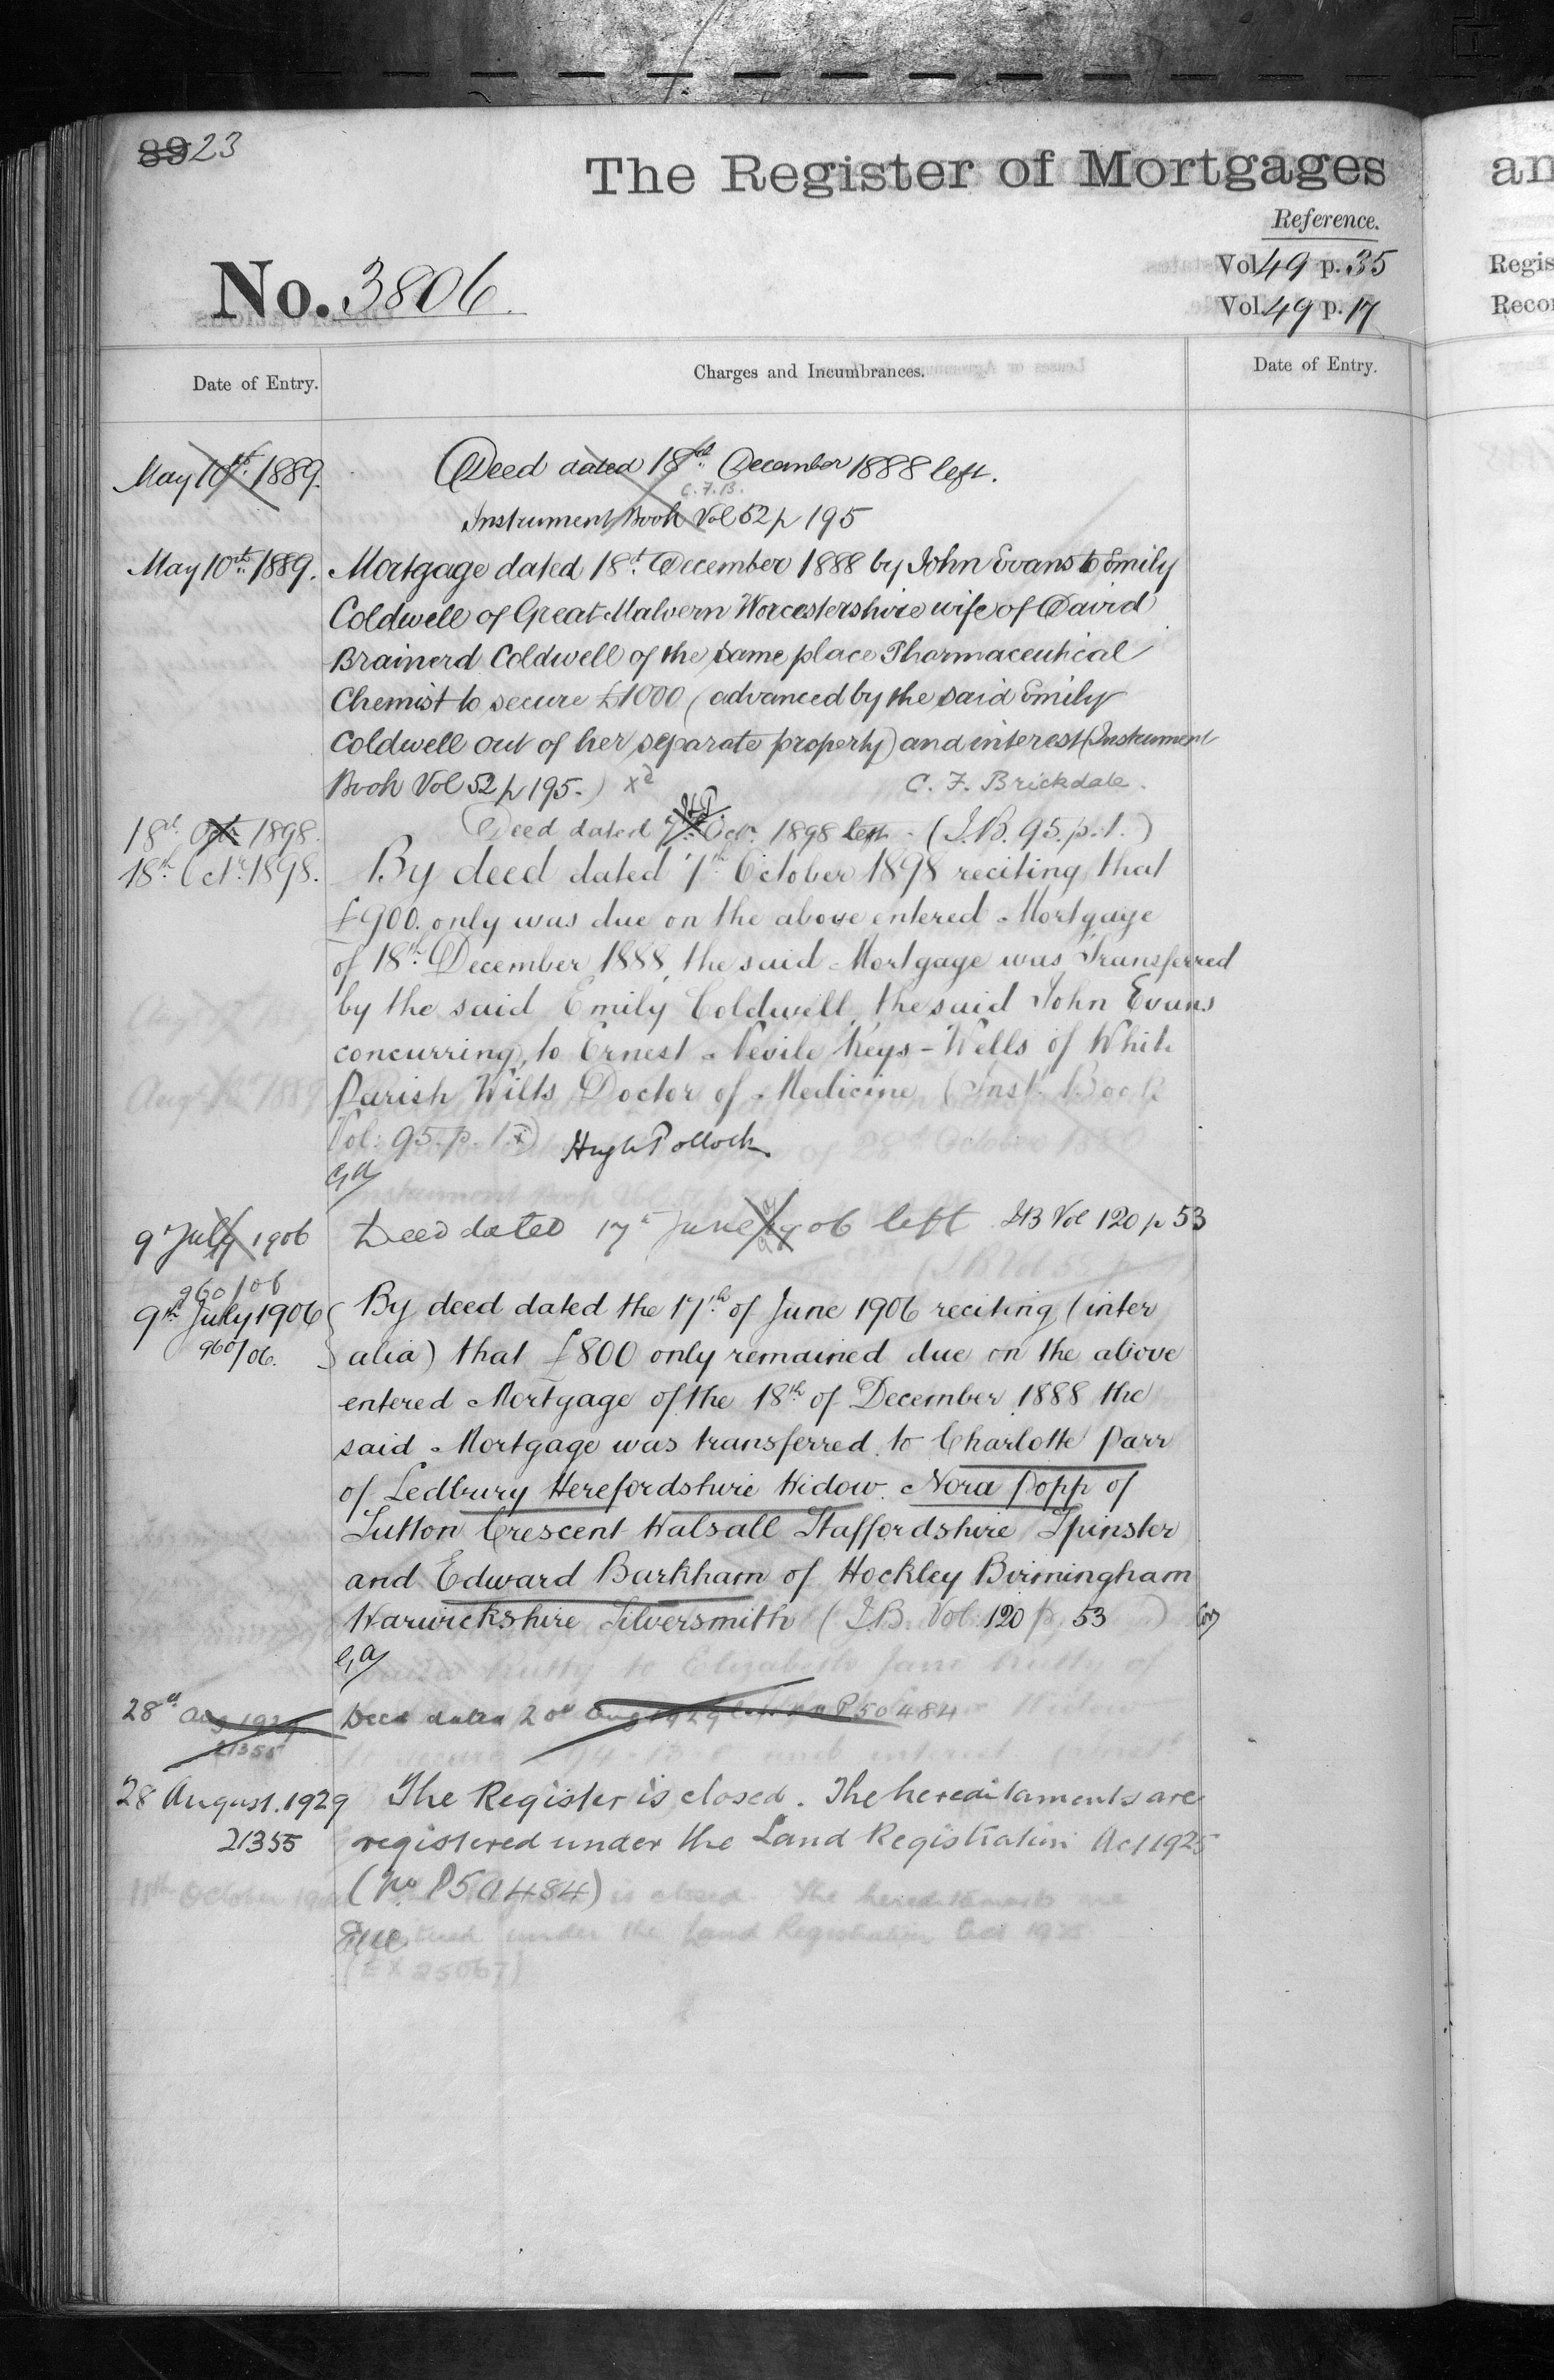 89 23
The Register of Mortgages
an
Reference.
No. 3806.
Vol. 49 p. 35
Regis
Vol. 49 p. 17
Recor
Date of Entry.
Charges and Incumbrances.
Date of Entry.
May 10th. 1889. Deed dated 18th. December 1888 left.
C.F.B.
Instrument Book Vol 52 p 195
May 10th. 1889. Mortgage dated 18th. December 1888 by John Evans to Emily
Coldwell of Great Malvern Worcestershire wife of David
Brainerd Coldwell of the same place Pharmaceutical
Chemist to secure £1000 (advanced by the said Emily
Coldwell out of her separate property) and interest (Instrument
Book Vol 52 p 195.) C. F. Brickdale.
18th. Oct. 1898. Deed dated 7th. Octr. 1898 left - (I.B. 95. p. 1.)
18th. Octr. 1898. By deed dated 7th October 1898 reciting that
£900. only was due on the above entered Mortgage
of 18th. December 1888, the said Mortgage was Transferred
by the said Emily Coldwell, the said John Evans
concurring, to Ernest Nevile Keys-Wells of White
Parish Wilts Doctor of Medicine (Inst. Book
Vol: 95. p. 1.) Hugh Pollock
9 July 1906 Deed dated 17th June 1906 left IB Vol 120 p 53
960/06
9th July 1906 By deed dated the 17th of June 1906 reciting (inter
960/06. alia) that £800 only remained due on the above
entered Mortgage of the 18th of December 1888 the
said Mortgage was transferred to Charlotte Parr
of Ledbury Herefordshire Widow. Nora Popp of
Sutton Crescent Walsall Staffordshire Spinster
and Edward Barkham of Hockley Birmingham
Warwickshire Silversmith (I.B. Vol: 120 p. 53)
28th Aug 1929 Deed dated 20th Aug 1929 P50484
21355
28 August. 1929 The Register is closed. The hereditaments are
21355 registered under the Land Registration Act 1925
(No P50484)